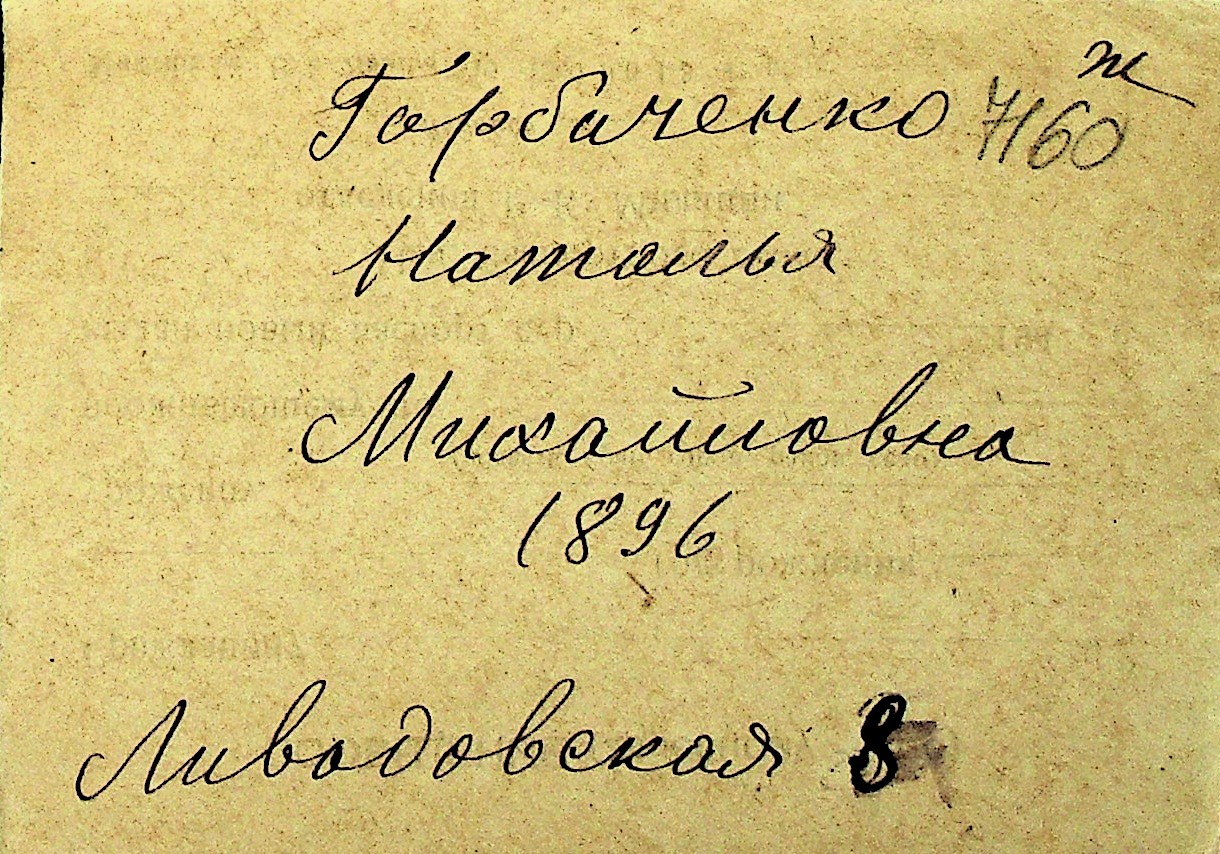 ж
Горбаченко 7160
Наталья
Михайловна
1896
Ливадовская 8